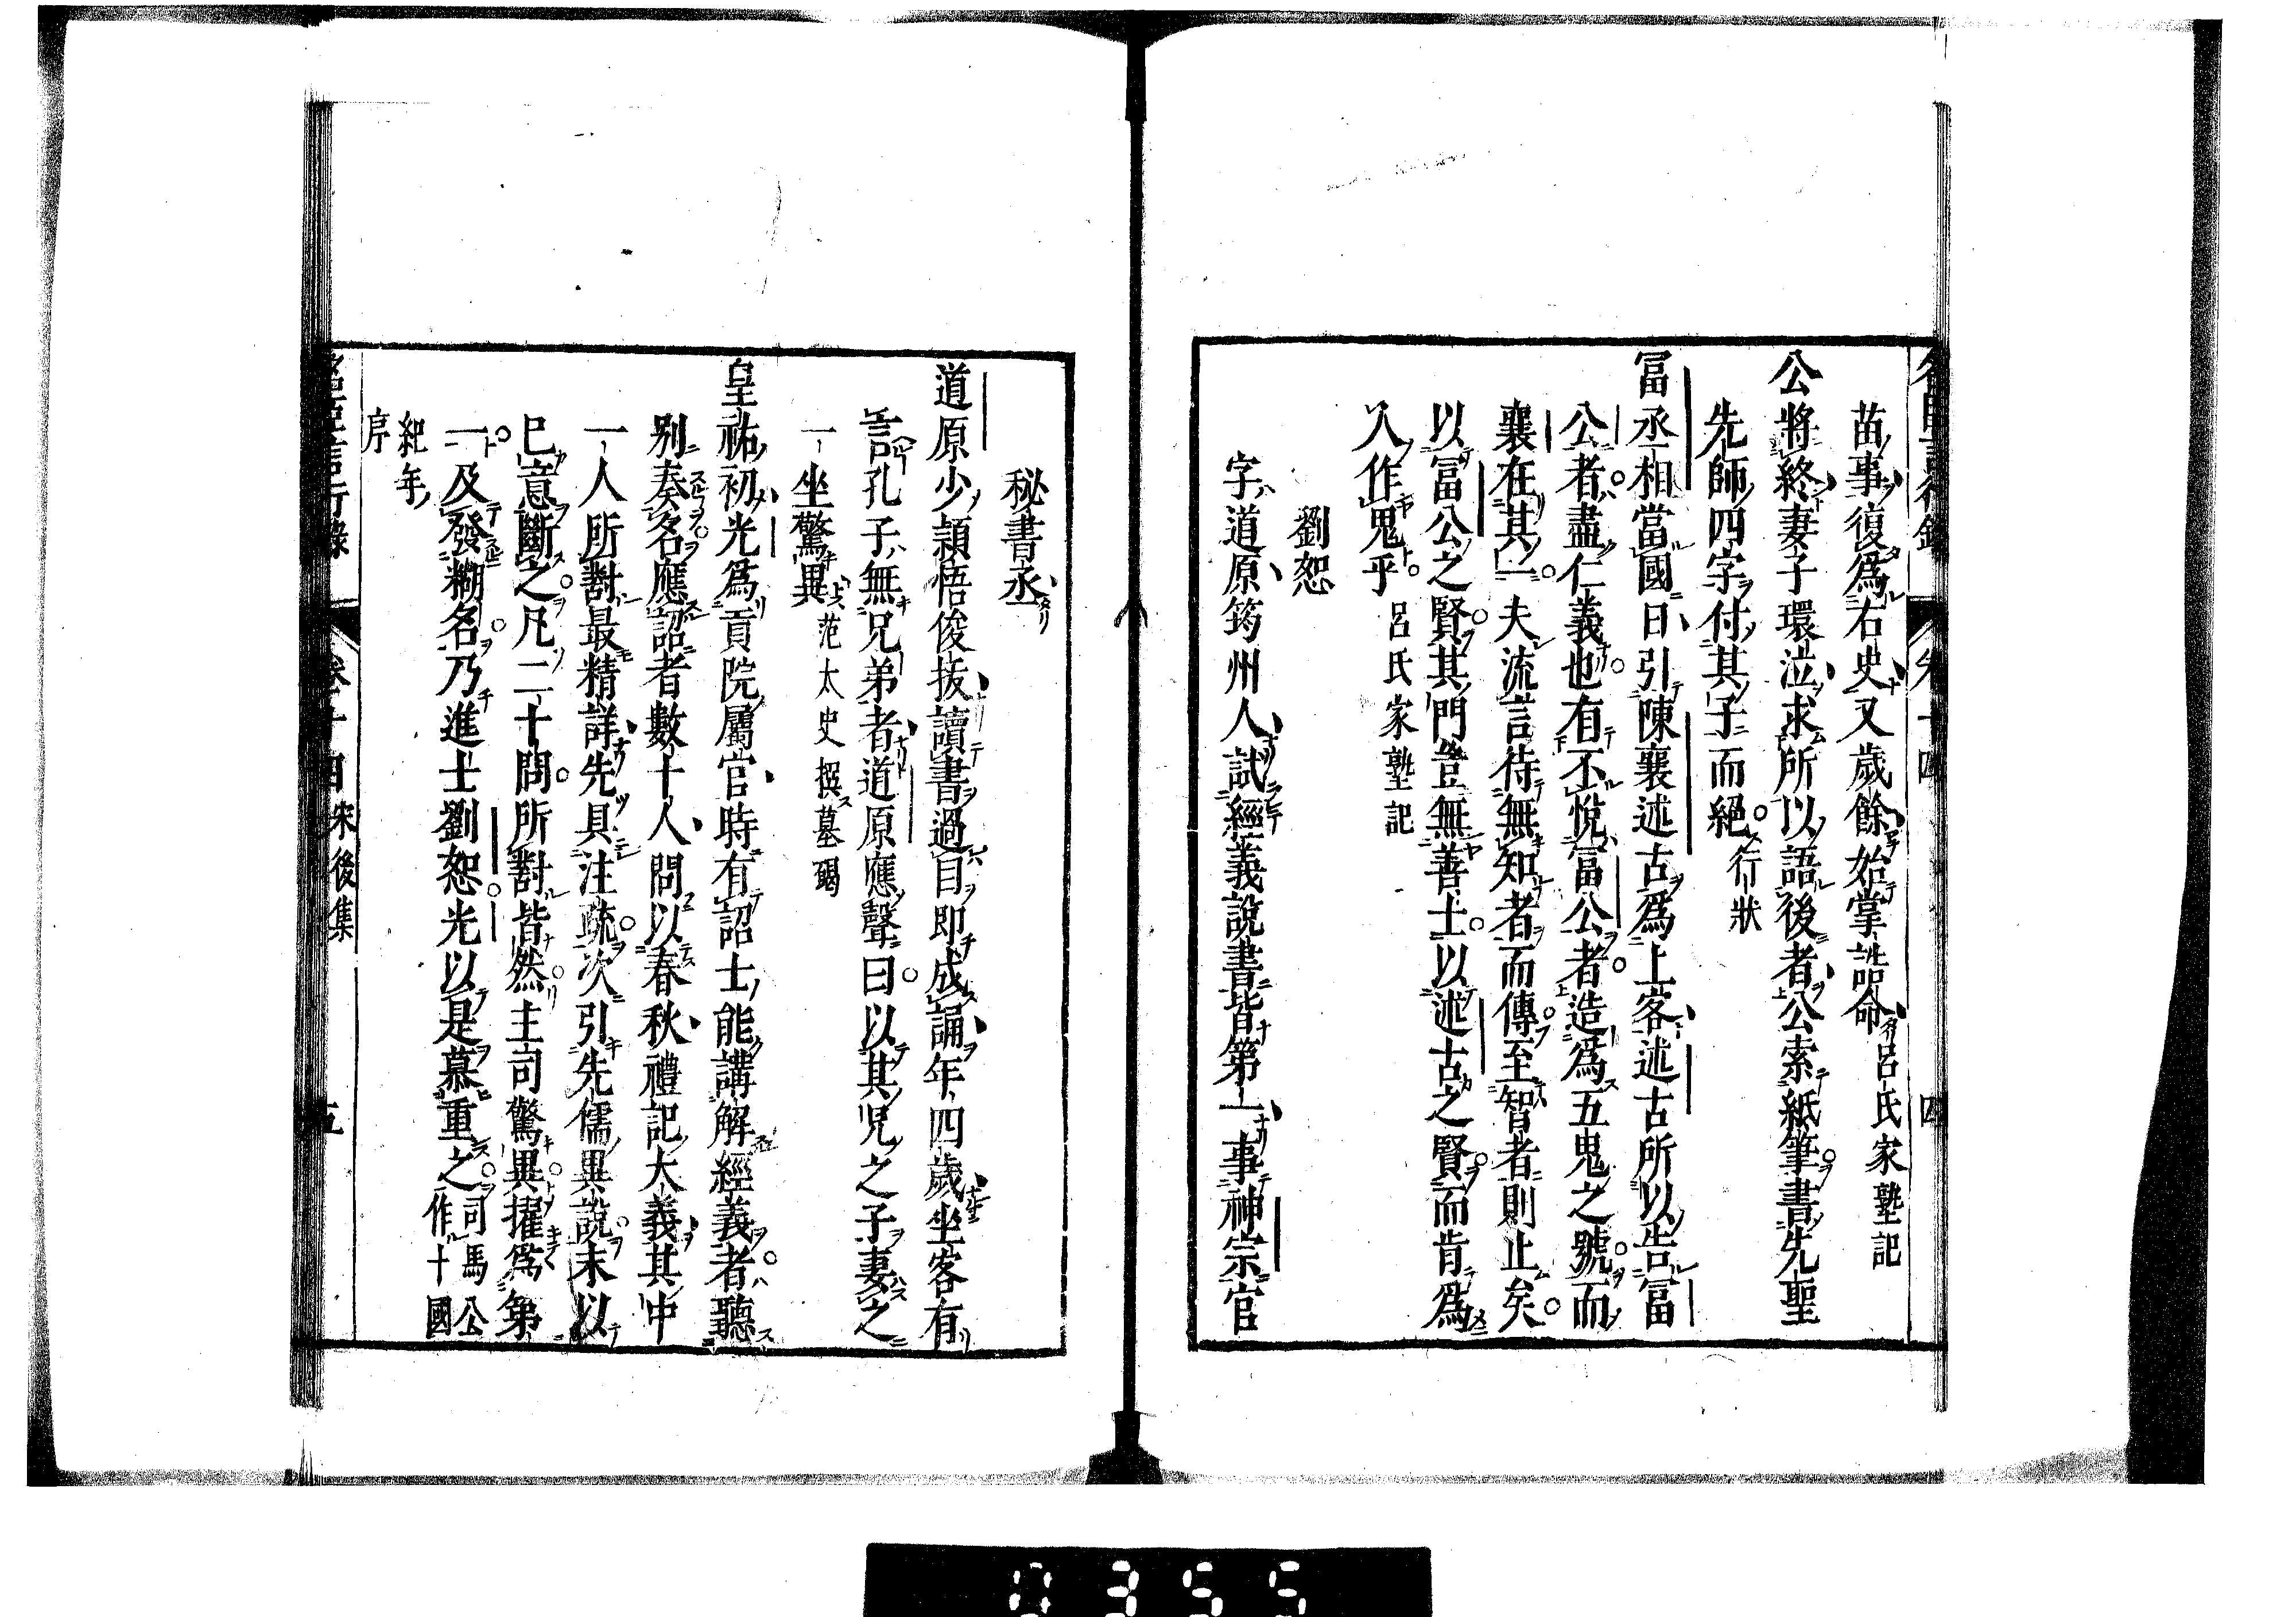 苗事復爲右史又歲餘始掌誥命呂氏家塾記
公將終妻子環泣求所以語後者公索紙筆書先聖
先師四字付其子而絕行狀
冨丞相當國日引陳襄述古爲上客述古所以告冨
公者盡仁義也有不悅冨公者造爲五鬼之號而
襄在其一夫流言待無知者而傳至智者則止矣
以冨公之賢其門豈無善士以述古之賢而肯爲
人作鬼乎呂氏家塾記
劉恕
字道原筠州人試經義說書皆第一事神宗官
秘書丞
道原少穎悟俊拔讀書過目即成誦年四歲坐客有
言孔子無兄弟者道原應聲曰以其兄之子妻之
一坐驚異范太史撰墓碣
皇祐初光爲貢院屬官時有詔士能講解經義者聽
别奏名應詔者數十人問以春秋禮記大義其中
一人所對最精詳先具注疏次引先儒異說末以
已意斷之凡二十問所對皆然主司驚異擢爲第
一及發糊名乃進士劉恕光以是慕重之司馬公作十國
紀年序
名臣言行錄 卷十四 宋後集 五